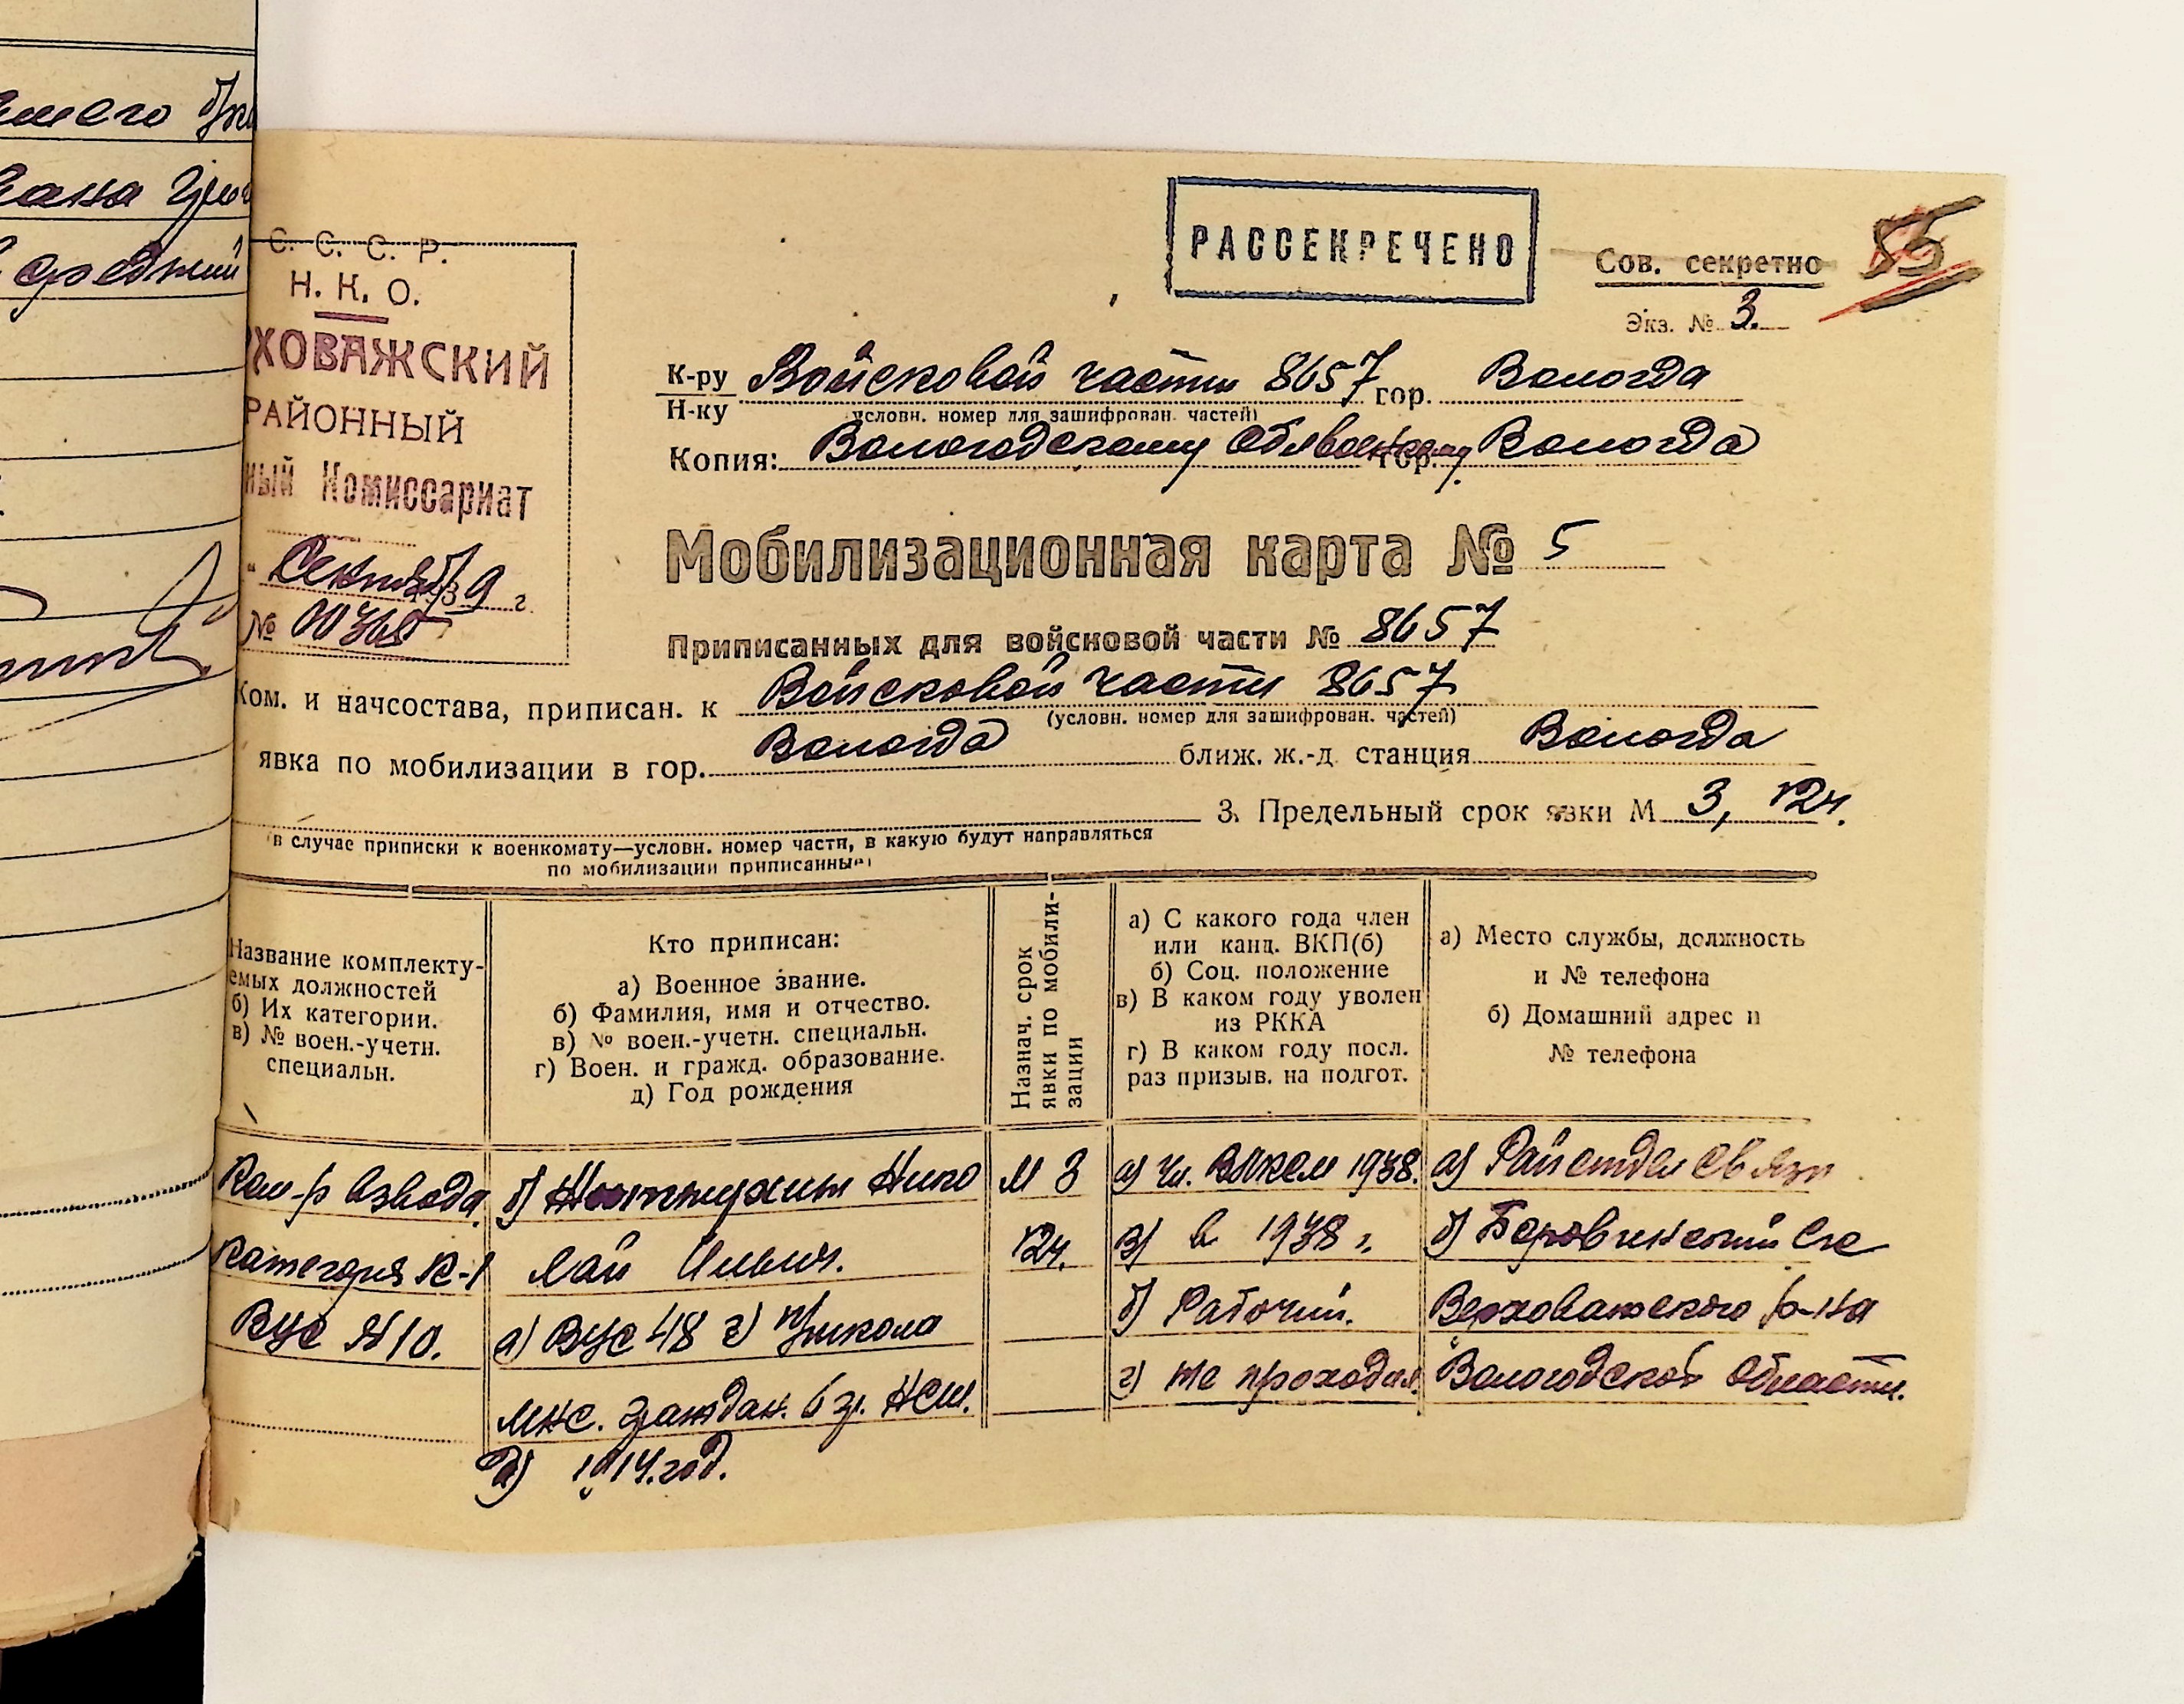 С. С. С. Р.
Н. К. О.
ХОВАЖСКИЙ
РАЙОННЫЙ
ный Комиссариат
" Сентября 1939 г.
№
РАССЕКРЕЧЕНО
Сов. секретно
85
Экз. № 3.
К-ру Войсковой части 8657 гор. Вологда
Н-ку
условн. номер для зашифрован. частей)
Копия: Вологодскому Облвоенкому гор. Вологда
Мобилизационная карта № 5
Приписанных для войсковой части № 8657
Ком. и начсостава, приписан. к Войсковой части 8657
(условн. номер для зашифрован. частей)
явка по мобилизации в гор. Вологда ближ. ж.-д. станция Вологда
3. Предельный срок явки М 3, 12ч.
(в случае приписки к военкомату—условн. номер части, в какую будут направляться
по мобилизации приписанные)
Название комплекту-
емых должностей
б) Их категории.
в) № воен.-учетн.
специальн.
Кто приписан:
а) Военное звание.
б) Фамилия, имя и отчество.
в) № воен.-учетн. специальн.
г) Воен. и гражд. образование.
д) Год рождения
Назнач. срок
явки по мобили-
зации
а) С какого года член
или канд. ВКП(б)
б) Соц. положение
в) В каком году уволен
из РККА
г) В каком году посл.
раз призыв. на подгот.
а) Место службы, должность
и № телефона
б) Домашний адрес и
№ телефона
Ком-р взвода
Категория К-1
ВУС № 10.
б) Нико
лай Ильич.
а) ВУС 48 г)
мнс. граждан. 6 гр. НСШ.
д) 1914.год.
М 3
12ч.
а) чл. ВЛКСМ 1938.
в) в 1938 г.
б) Рабочий.
г) не проходил.
а) Райотдел связи
б)
Верховажского р-на
Вологодской Области.
шего
средний